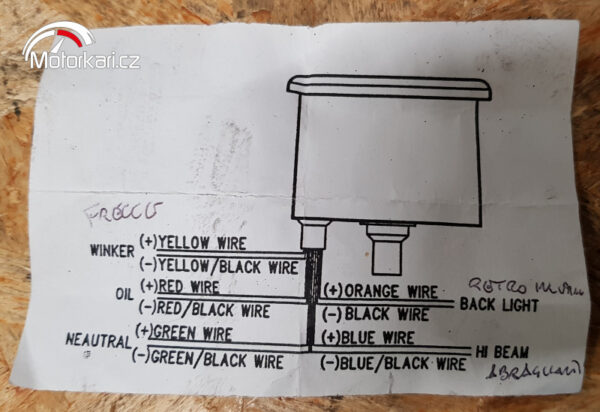 Motorkari.cz
FRECCE
WINKER (+)YELLOW WIRE
(-)YELLOW/BLACK WIRE
OIL (+)RED WIRE
(-)RED/BLACK WIRE
NEAUTRAL (+)GREEN WIRE
(-)GREEN/BLACK WIRE
RETRO
(+)ORANGE WIRE BACK LIGHT
(-) BLACK WIRE
(+)BLUE WIRE HI BEAM
(-)BLUE/BLACK WIRE